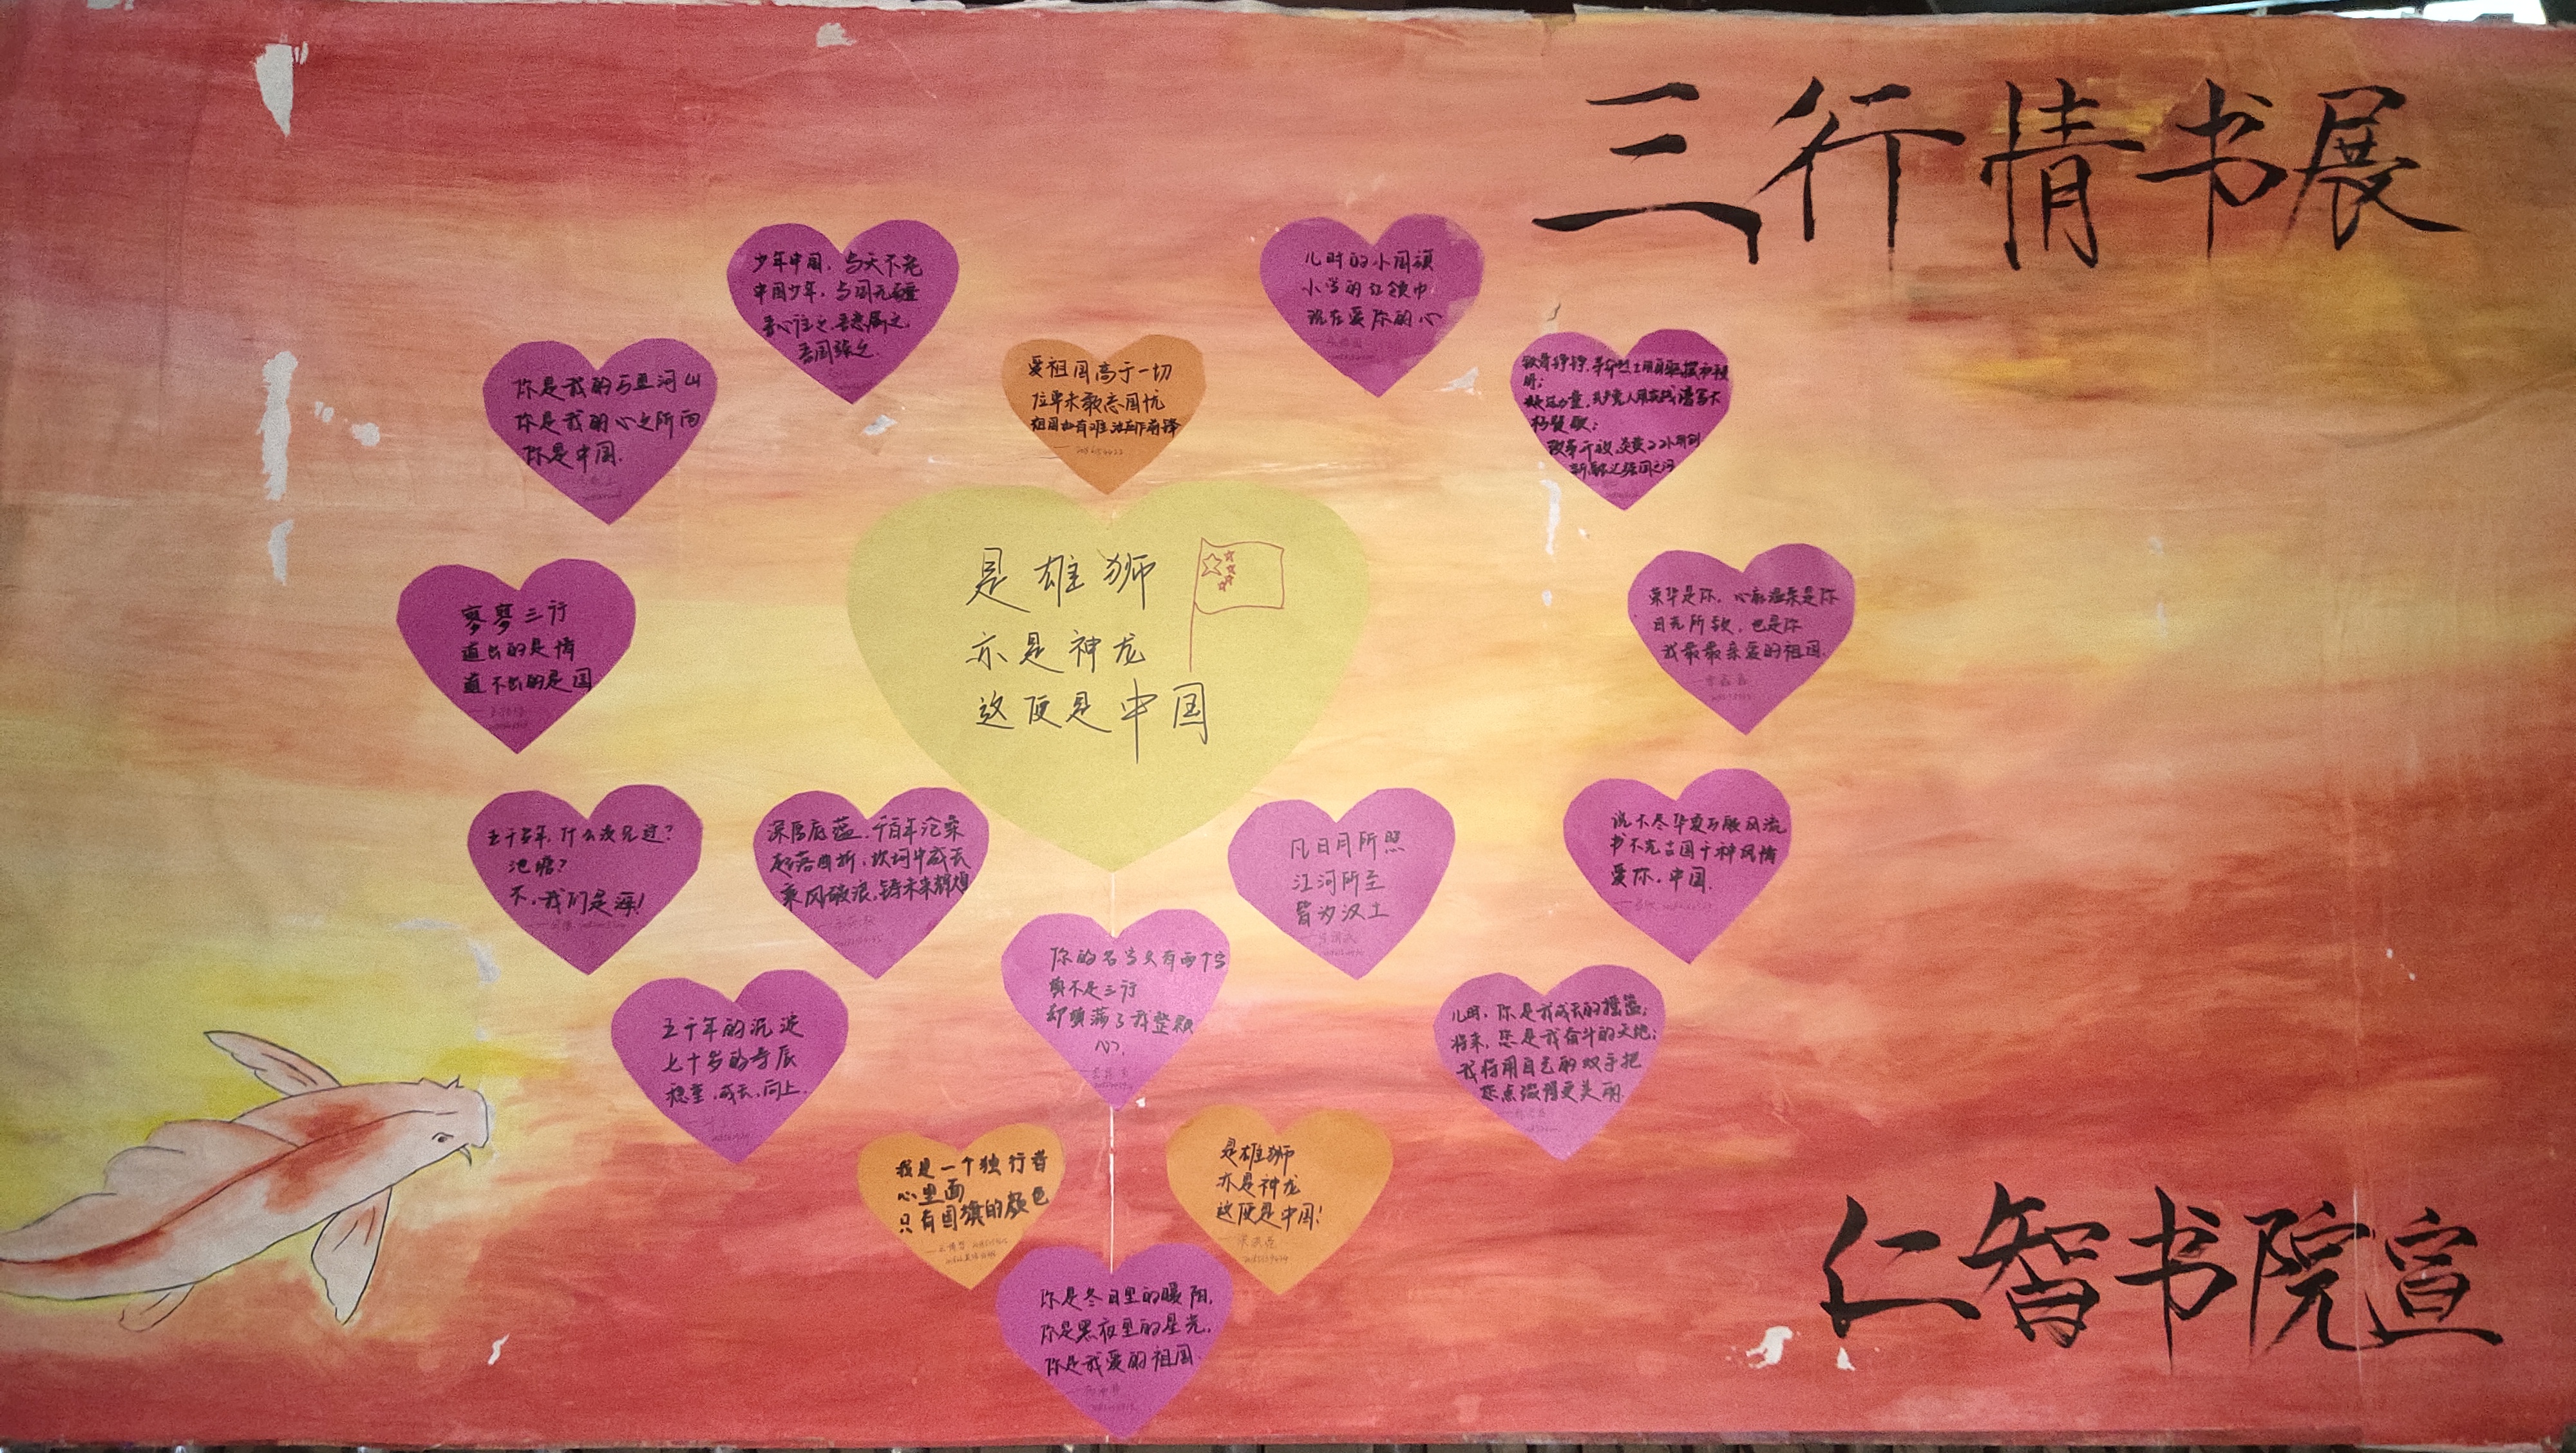 三行情书展
少年中国，与天不老
中国少年，与国无疆
吾心往之，吾志属之，
吾国强之．
儿时的小国旗
小学的红领巾
现在爱你的心
你是我的万里河山
你是我的心之所向
你是中国．
爱祖国高于一切
位卑未敢忘国忧
祖国如有难 汝应作前锋
铁骨铮铮，革命烈士用
共产党人用
赞歌；
改革开放，炎黄
是雄狮
亦是神龙
这便是中国
寥寥三行
道出的是情
道不出的是国
荣华是你，心底温柔是你
目光所致，也是你
我最最亲爱的祖国．
五千多年，什么没见过？
池塘？
不，我们是海！
深厚底蕴，千百年沧桑
起落曲折，坎坷中成长
乘风破浪，铸未来辉煌
凡日月所照
江河所至
皆为汉土
说不尽华夏万般风流
书不完古国千种风情
爱你，中国．
你的名字只有两个字
填不足三行
却填满了我整颗
心．
五千年的沉淀
七十岁的寿辰
稳重，成长，向上．
儿时，你是我成长的摇篮；
将来，您是我奋斗的天地；
我将用自己的双手把
您点缀得更美丽．
我是一个独行者
心里面
只有国旗的颜色
是雄狮
亦是神龙
这便是中国！
你是冬日里的暖阳，
你是黑夜里的星光，
你是我爱的祖国．
仁智书院宣